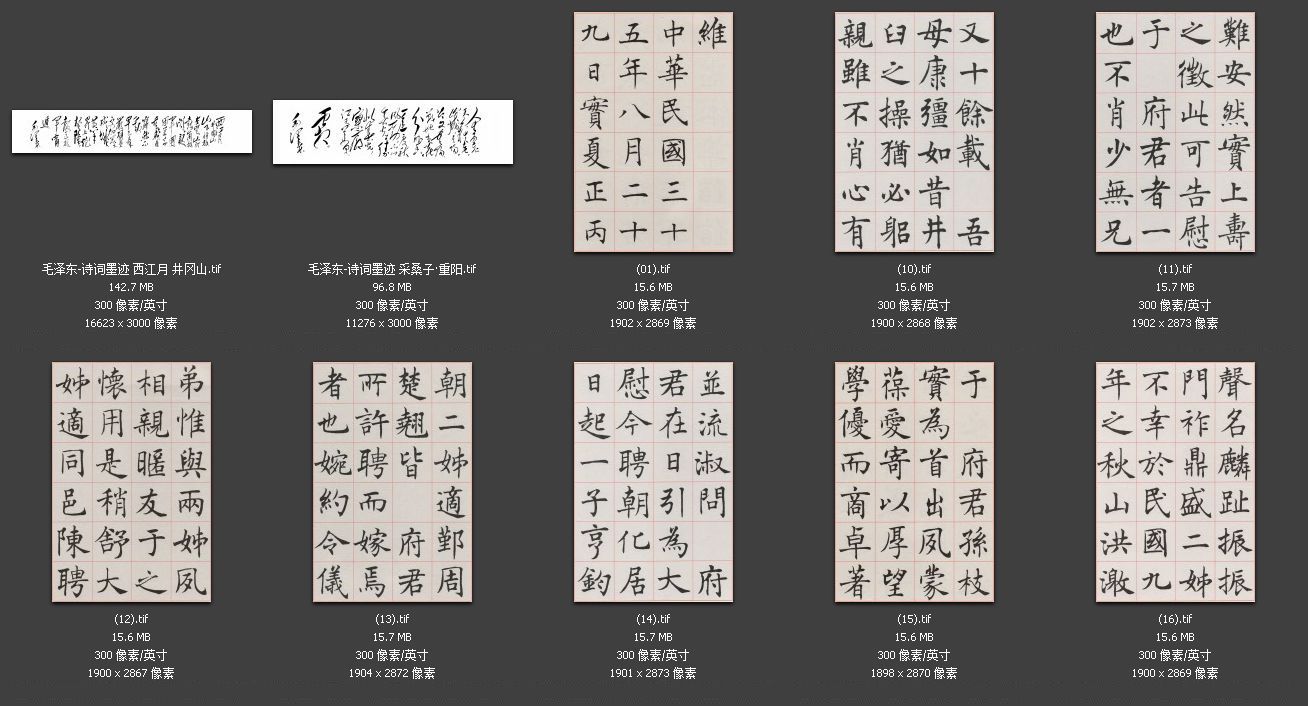 毛泽东-诗词墨迹 西江月 井冈山.tif
142.7 MB
300 像素/英寸
16623 x 3000 像素
毛泽东-诗词墨迹 采桑子·重阳.tif
96.8 MB
300 像素/英寸
11276 x 3000 像素
維
中華民國三十
五年八月二十
九日實夏正丙
(01).tif
15.6 MB
300 像素/英寸
1902 x 2869 像素
又十餘載 吾
母康彊如昔井
臼之操猶必躳
親雖不肖心有
(10).tif
15.6 MB
300 像素/英寸
1900 x 2868 像素
難安然實上壽
之徵此可告慰
于 府君者一
也不肖少無兄
(11).tif
15.7 MB
300 像素/英寸
1902 x 2873 像素
弟惟與兩姊夙
相親暱友于之
懷用是稍舒大
姊適同邑陳聘
(12).tif
15.6 MB
300 像素/英寸
1900 x 2867 像素
朝二姊適鄞周
楚翹皆 府君
所許聘而嫁焉
者也婉約令儀
(13).tif
15.7 MB
300 像素/英寸
1904 x 2872 像素
並流淑問 府
君在日引為大
慰今聘朝化居
日起一子亨鈞
(14).tif
15.7 MB
300 像素/英寸
1901 x 2873 像素
于 府君孫枝
實為首出夙蒙
葆愛寄以厚望
學優而商卓著
(15).tif
15.6 MB
300 像素/英寸
1898 x 2870 像素
聲名麟趾振振
門祚鼎盛二姊
不幸於民國九
年之秋山洪激
(16).tif
15.6 MB
300 像素/英寸
1900 x 2869 像素